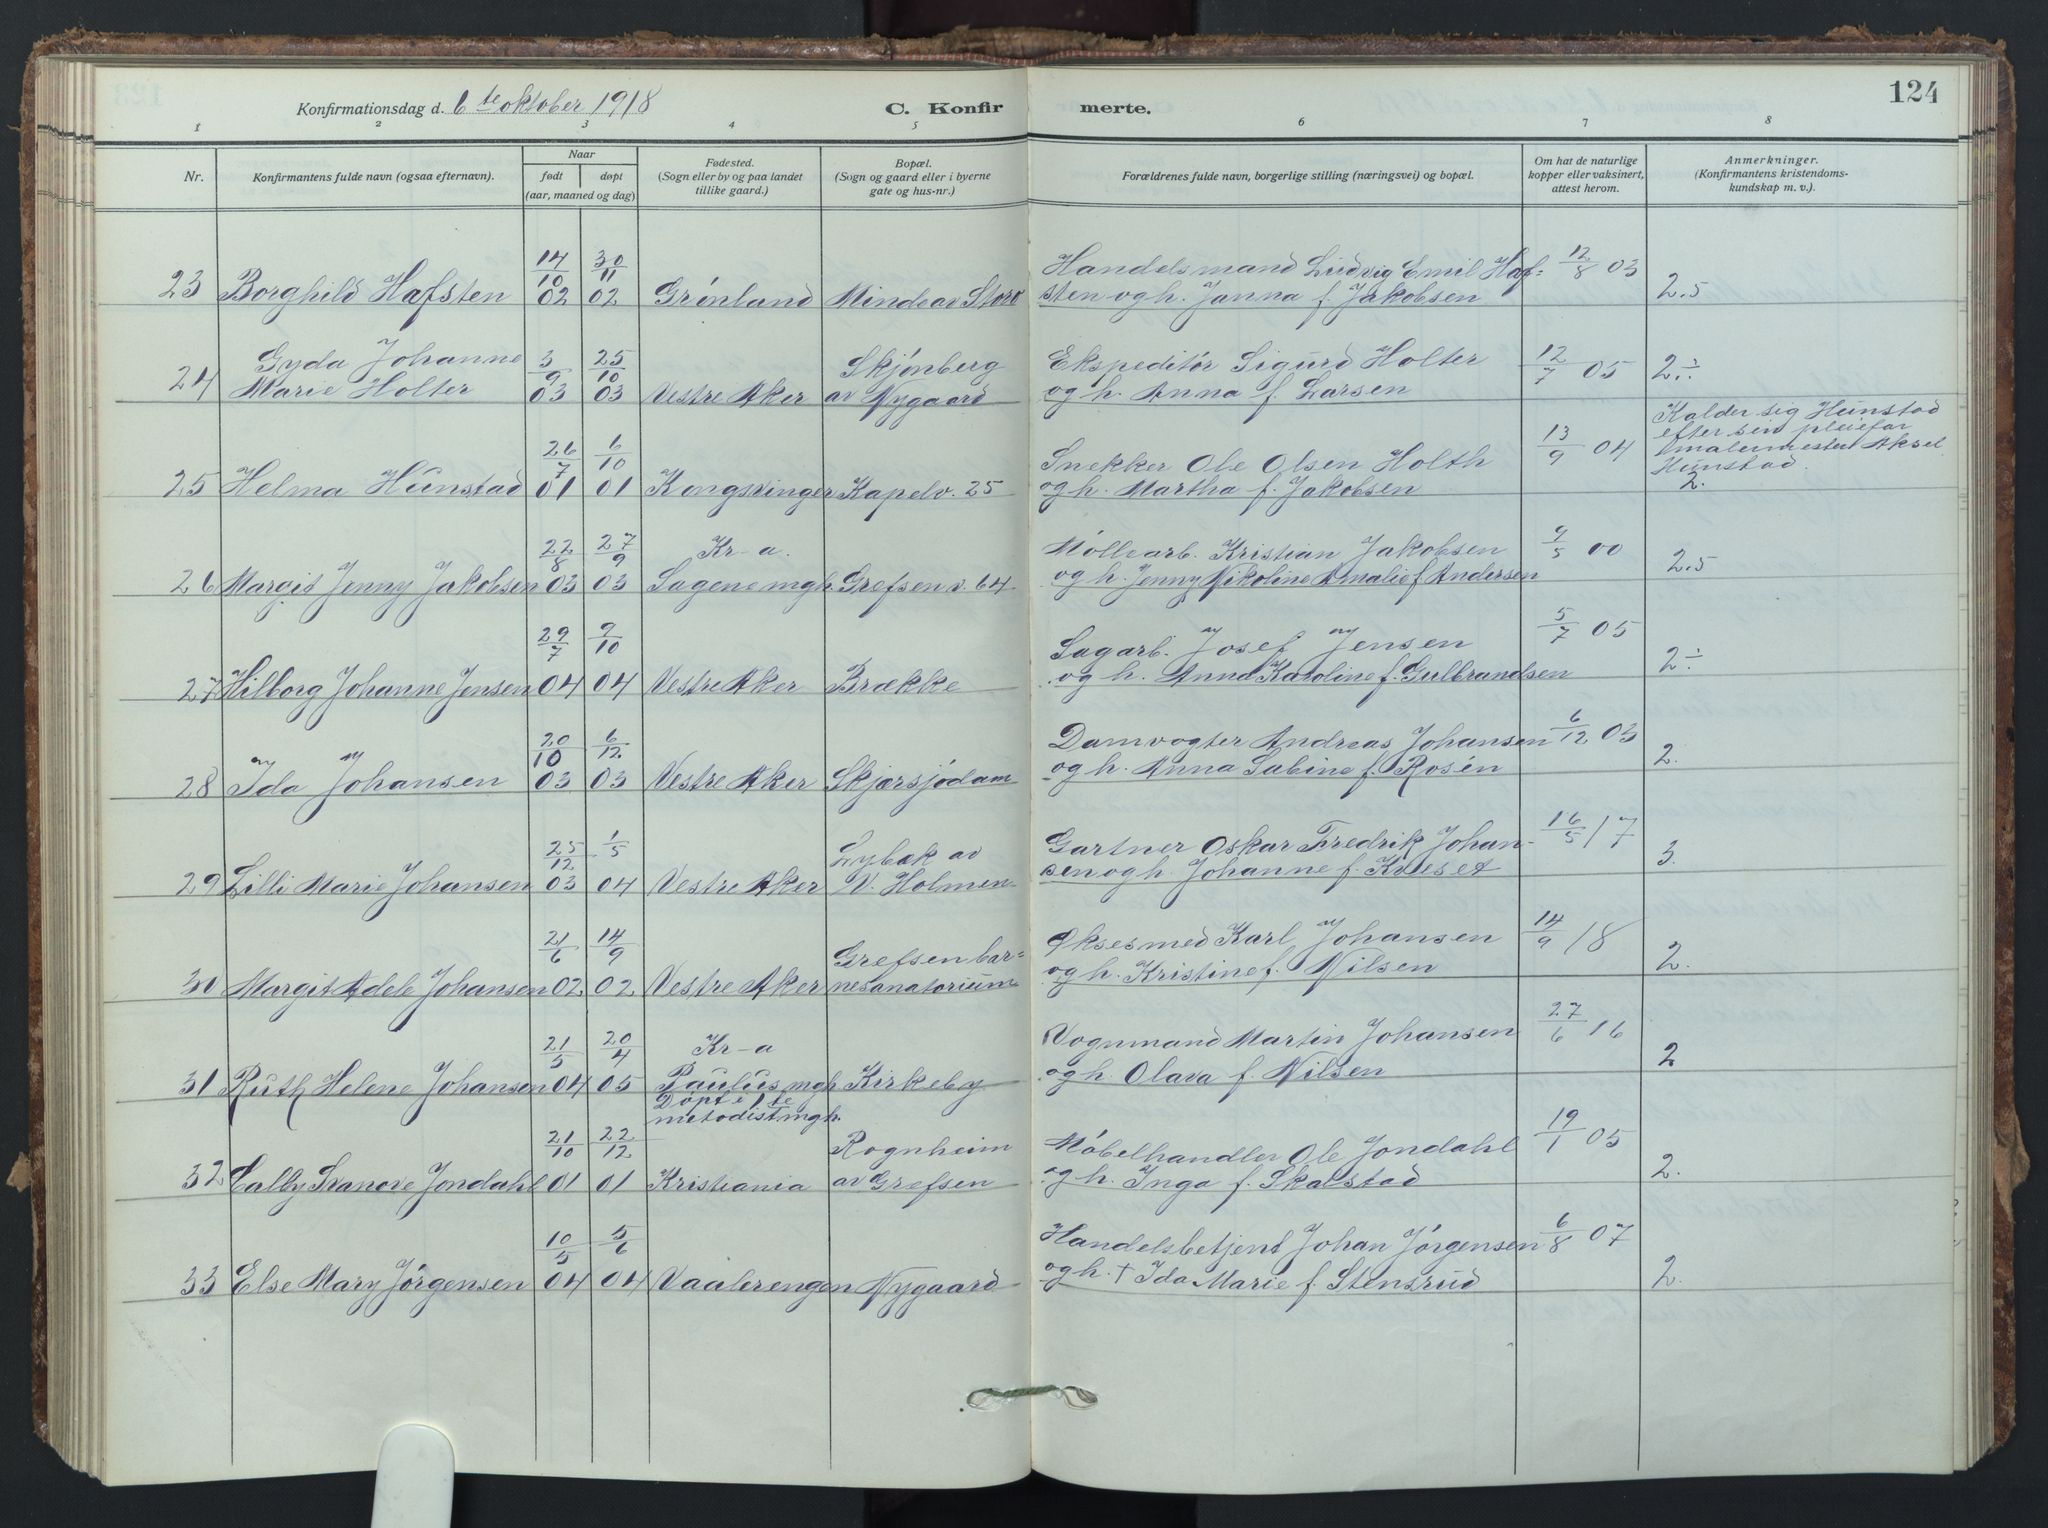 124
Konfirmationsdag d. 6te oktober 1918
C. Konfirmerte.
1 2 3 4 5 6 7 8
Nr.
Konfirmantens fulde navn (ogsaa efternavn).
Naar
født
døpt
(aar, maaned og dag)
Fødested.
(Sogn eller by og paa landet
tillike gaard.)
Bopæl.
(Sogn og gaard eller i byerne
gate og hus-nr.)
Forældrenes fulde navn, borgerlige stilling (næringsvei) og bopæl.
Om hat de naturlige
kopper eller vaksinert,
attest herom.
Anmerkninger.
(Konfirmantens kristendoms-
kundskap m. v.)
14/10 30/11 Handelsmand Ludvig Emil Haf= 12/8 03
23 Borghild Hafsten 02 02 Grönland Minde av Storo sten og h. Janna f. Jakobsen 2.5
Gyda Johanne 3/9 25/10 Skjönberg Ekspeditör Sigurd Holter 12/7 05
24 Marie Holter 03 03 Vestre Aker av Nygaard og h. Anna f. Larsen 2÷
Kalder sig Hunstad
efter sin pleiefar
malermester Aksel
Hunstad.
26/7 6/10 Snekker Ole Olsen Holth 13/9 04
25 Helma Hunstad 01 01 Kongsvinger Kapelv. 25 og h. Martha f. Jakobsen 2.
22/8 27/9 Kr-a. Möllearb. Kristian Jakobsen 9/5 00
26 Margit Jenny Jakobsen 03 03 Sagene mgh. Grefsenv. 64 og h. Jenny Nikoline Amalie f Andersen 2.5
29/7 9/10 Sagarb. Josef Jensen 5/7 05
27 Hilborg Johanne Jensen 04 04 Vestre Aker Brække og h. Anna Karoline f. Gulbrandsen 2÷
20/10 6/12 Damvogter Andreas Johansen 6/12 03
28 Ida Johansen 03 03 Vestre Aker Skjærsjödam og h. Anna Sabine f. Rosén 2.
25/12 1/5 Lybæk av Gartner Oskar Fredrik Johan- 16/5 17
29 Lilli Marie Johansen 03 04 Vestre Aker V. Holmen sen og h. Johanne f. Kveset 3.
21/6 14/9 Grefsen bar= Øksesmed Karl Johansen 14/9 18
30 Margit Adele Johansen 02 02 Vestre Aker nesanatorium og h. Kristine f. Nilsen 2.
21/5 20/4 Kr-a Vognmand Martin Johansen 27/6 16
31 Ruth Helene Johansen 04 05 Paulus mgh. Kirkeby og h. Olava f. Nilsen 2
Döpt i 1te
metodistmgh.
21/10 22/12 Rognheim Möbelhandler Ole Jondahl 19/1 05
32 Calby Svanove Jondahl 01 01 Kristiania av Grefsen og h. Inga f. Skalstad 2.
10/5 5/6 Handelsbetjent Johan Jörgensen 6/8 07
33 Else Mary Jörgensen 04 04 Vaalerengen Nygaard og h. † Ida Marie f. Stensrud 2.